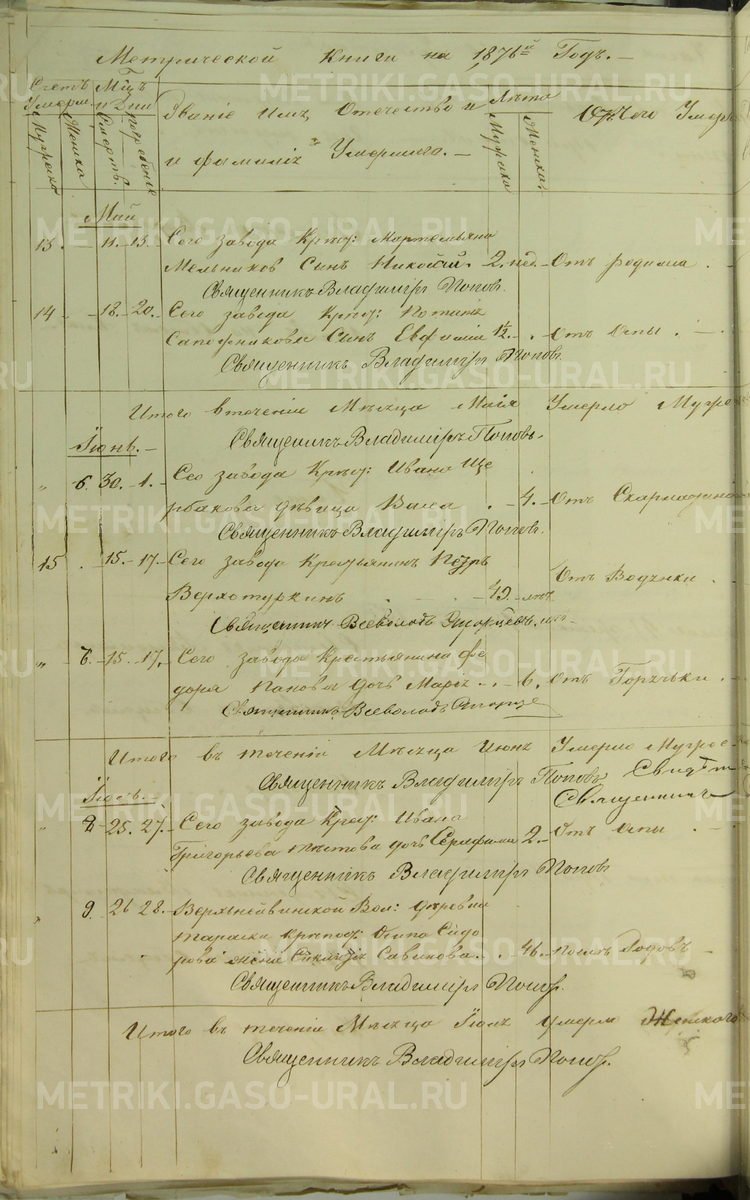 Метрической Книги на 1876й Годъ.
Счетъ Умерш. Мцъ и Дни Званіе Имя Отечество и Лѣта Отъ чего Умер
Мужеска Женска Смерть. погребенія и фамилія Умершаго. Мужска Женска
Май
13. - 11. - 13. Сего завода Крест: Мартемьяна
Мельников Сынъ Николай. 2. нед. Отъ родимца
Священникъ Владимиръ Поповъ.
14 - 18. - 20. Сего завода Крест:
Сапожникова Сынъ Евфимій 1½. - Отъ Оспы
Священникъ Владимиръ Поповъ
Итого въ теченіи Мѣсяца Маія Умерло Муже
Священникъ Владимиръ Поповъ.
Іюнь.
" 6. 30. - 1. Сего завода Крест: Ивана Ще
рбакова дѣвица - 4. Отъ Скарлатины
Священникъ Владимиръ Поповъ.
15 . 15. - 17. Сего завода Крестьянинъ Петръ
Верхотуркинъ 49. лѣт. Отъ Водянки
Священник Всеволодъ
" 7. 15. 17. Сего завода Крестьянина Фе
дора Панова дочь Марія 6. Отъ Горячки
Священникъ Всеволодъ
Итого въ теченіи Мѣсяца Іюня Умерло Мужес
Священникъ Владимиръ Поповъ
Священникъ
Іюль.
" 8 25. 27. Сего завода Крест: Ивана
Григорьева дочь Серафима 2. Отъ Оспы
Священникъ Владимиръ Поповъ
9. 26 28. Верхъ Нейвинской Вол: деревни
Тараски Осипа Сидо
рова жена Савинова. 46. послѣ Родовъ
Священникъ Владимиръ Поповъ.
Итого въ теченіи Мѣсяца Іюля умерл Женского
Священникъ Владимиръ Поповъ.
METRIKI.GASO-URAL.RU